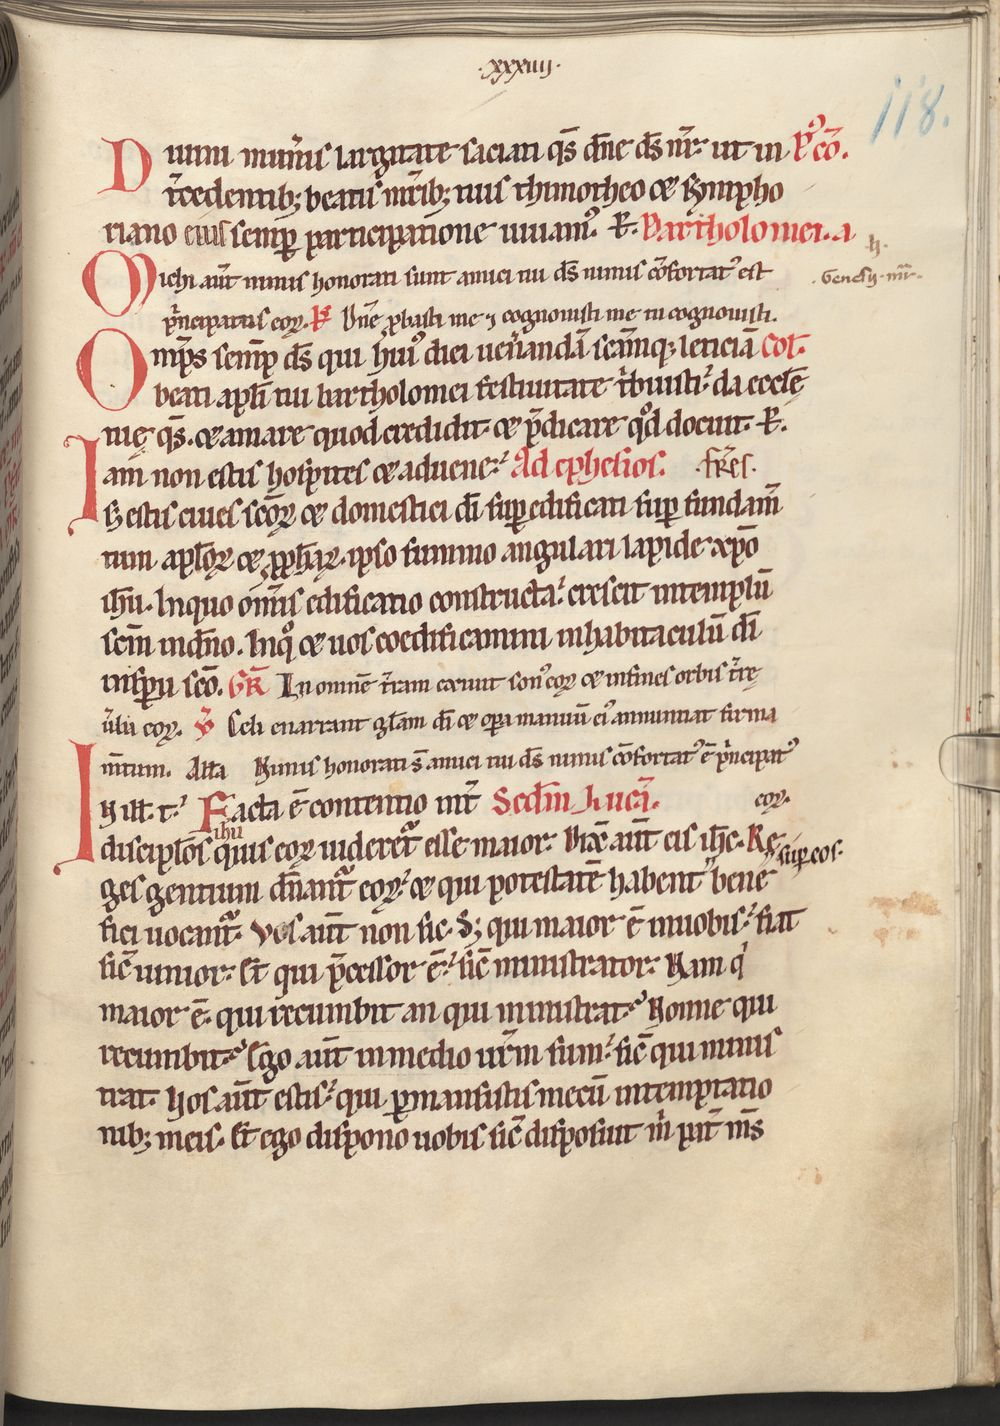 ·xxxiiij·
118.
Diuini mun̄is largitate saciati q̄s dn̄e ds̄ nr̄: ut in P̾cō.
t̄cedentib; beatis mr̄ib; tuis thimotheo & Sympho
riano eius semp̄ participatione uiuam᾽. P̶. Bartholomei. a
h.
Michi aut̄ nimis honorati sunt amici tui ds̄ nimis c̄fortat᾽ est
·Genesii·mr̄·
p̄ncipatus eoꝝ. P̶ Dn̄e ꝓbasti me ⁊ cognouisti me tu cognouisti.
Omp̄s semp̄ ds̄ qui hui᾽ diei uen̄andā scāmq; leticiā Col.
beati apl̄i tui bartholomei festiuitate t̄buisti: da eccl̄ę
tuę q̄s. & amare quod credidit. & p̄dicare qd̾ docuit. P̶.
Iam non estis hospites & aduene: Ad ephesios. ·fr̄es·
S; estis ciues sc̄oꝝ & domestici dī sup̄edificati sup̄ fundam̄
tum apl̄oꝝ & ꝓph̄aꝝ. ipso summo angulari lapide xp̄o
ih̄u. Inquo om̄is edificatio constructa: crescit intemplū
scm̄ indn̄o. Inq̾ & uos coedificamini inhabitaculū dī
insp̄u scō. GR̄ In omnē t̄ram exiuit son᾽ eoꝝ & infines orbis t̄rę
ūba eoꝝ. V̄ Celi enarrant gl̄am dī & opa manuū ei᾽ annuntiat firma
m̄tum. Alla Nimis honorati s̄ amici tui ds̄ nimis c̄fortat᾽ ē p̄ncipat᾽
eoꝝ.
In ill. t. Facta ē contentio int̄ Sedm̄ Lucā.
ihu
discipl̄os quis eoꝝ uideret᷑ esse maior. Dix̄ aut̄ eis ih̄c. Re
sup̄ eos.
ges gentium dn̄ant᷑ eoꝝ: & qui potestatē habent bene
fici uocant᷑. Vos aut̄ non sic. S; qui maior ē inuobis: fiat
sic̄ iunior. Et qui p̄cessor ē: sic̄ ministrator. Nam qͥ
maior ē. qui recumbit an qui ministrat? Nonne qui
recumbit? Ego aut̄ inmedio ur̄m sum: sic̄ qui minis
trat. Uos aut̄ estis: qui p̄mansistis mecū intemptatio
nib; meis. Et ego dispono uobis sic̄ disposuit m̄ pat̄ ms̄